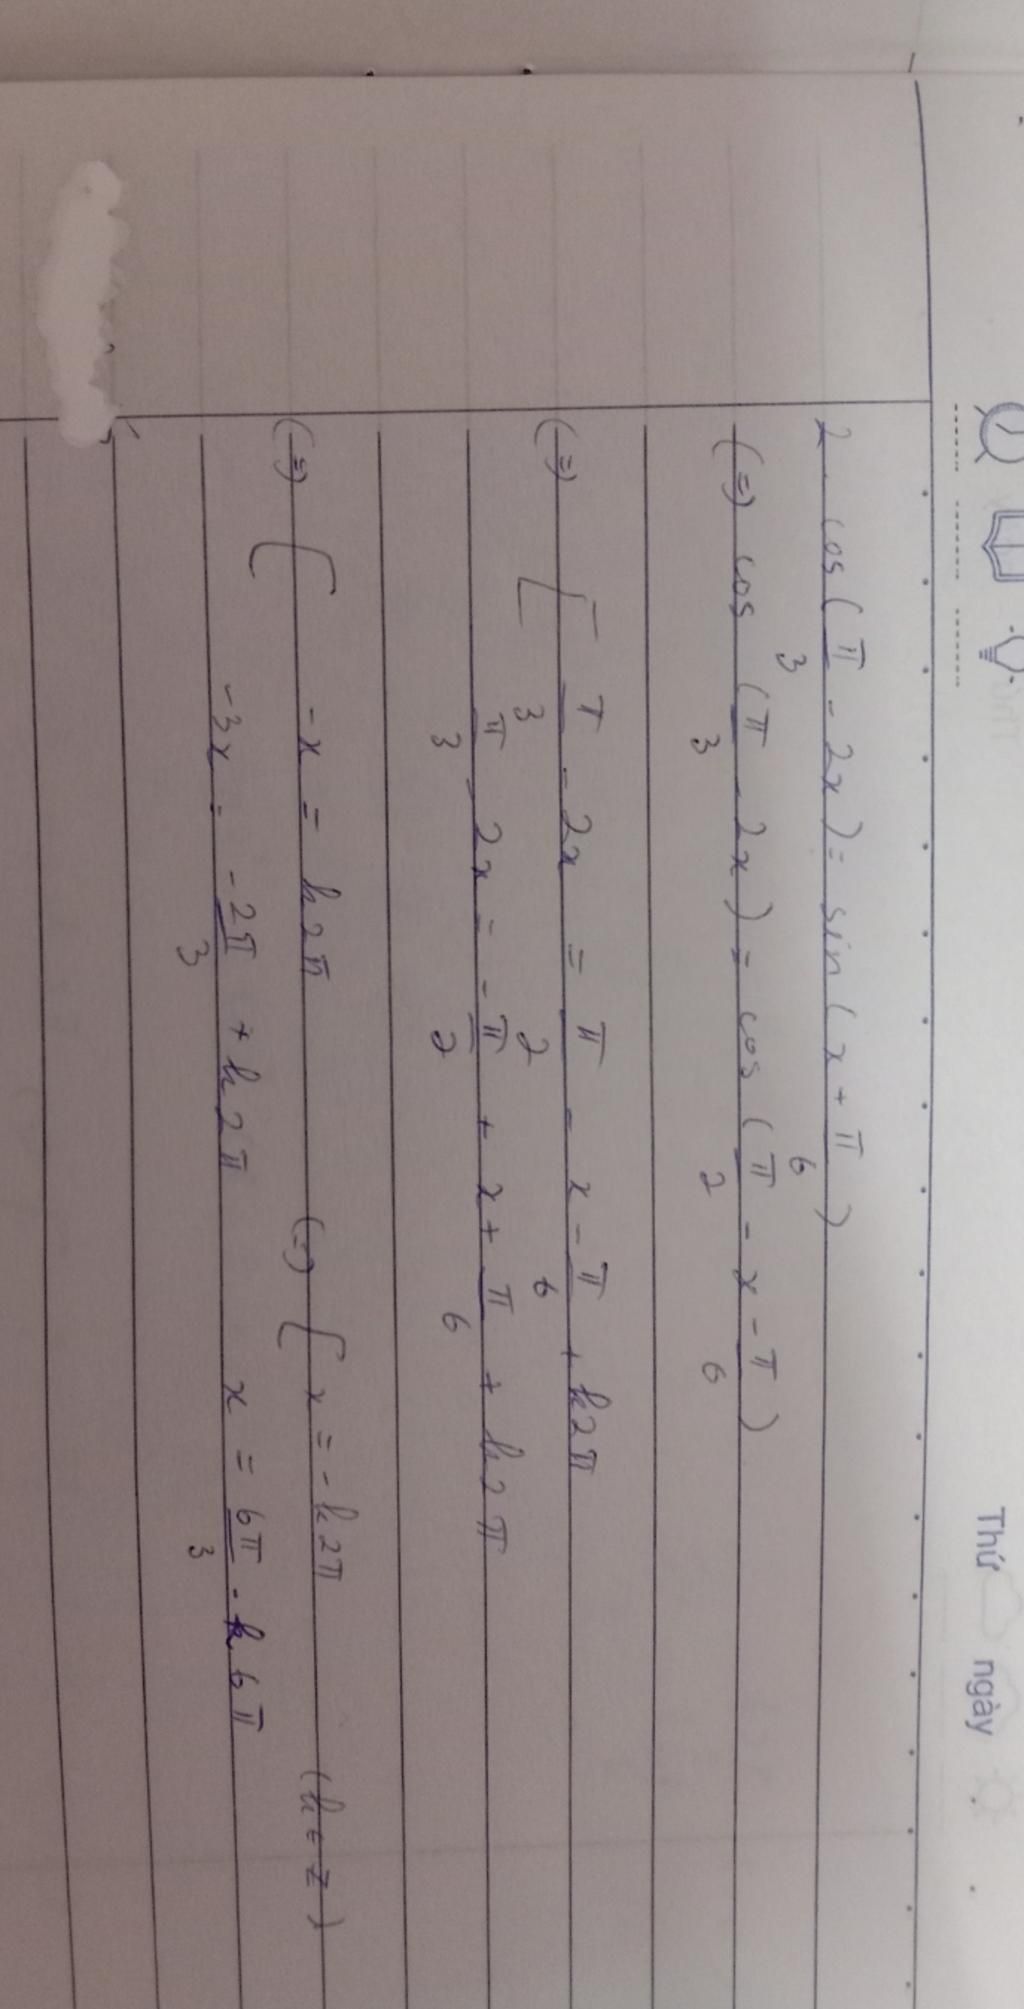 Thứ ngày
2. cos(π/3 - 2x) = sin(x + π/6)
(=) cos (π/3 - 2x) = cos (π/2 - x - π/6)
(=) [ π/3 - 2x = π/2 - x - π/6 + k2π
π/3 - 2x = -π/2 + x + π/6 + k2π
(=) [ -x = k2π (=) [ x = -k2π (k ∈ Z)
-3x = -2π/3 + k2π x = 6π/3 - k6π